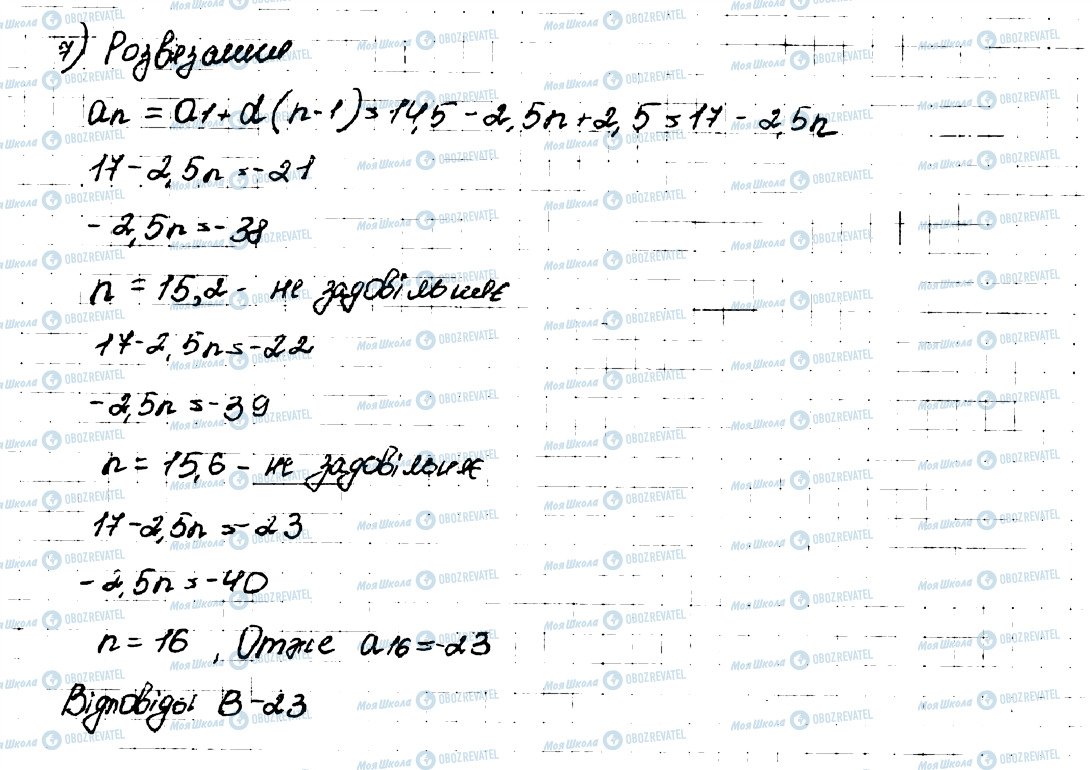 7) Розвязання
an = a1 + d(n-1) = 14,5 - 2,5n + 2,5 = 17 - 2,5n
17 - 2,5n = -21
-2,5n = -38
n = 15,2 - не задовільняє
17 - 2,5n = -22
-2,5n = -39
n = 15,6 - не задовільняє
17 - 2,5n = -23
-2,5n = -40
n = 16 , Отже a16 = -23
Відповідь В -23